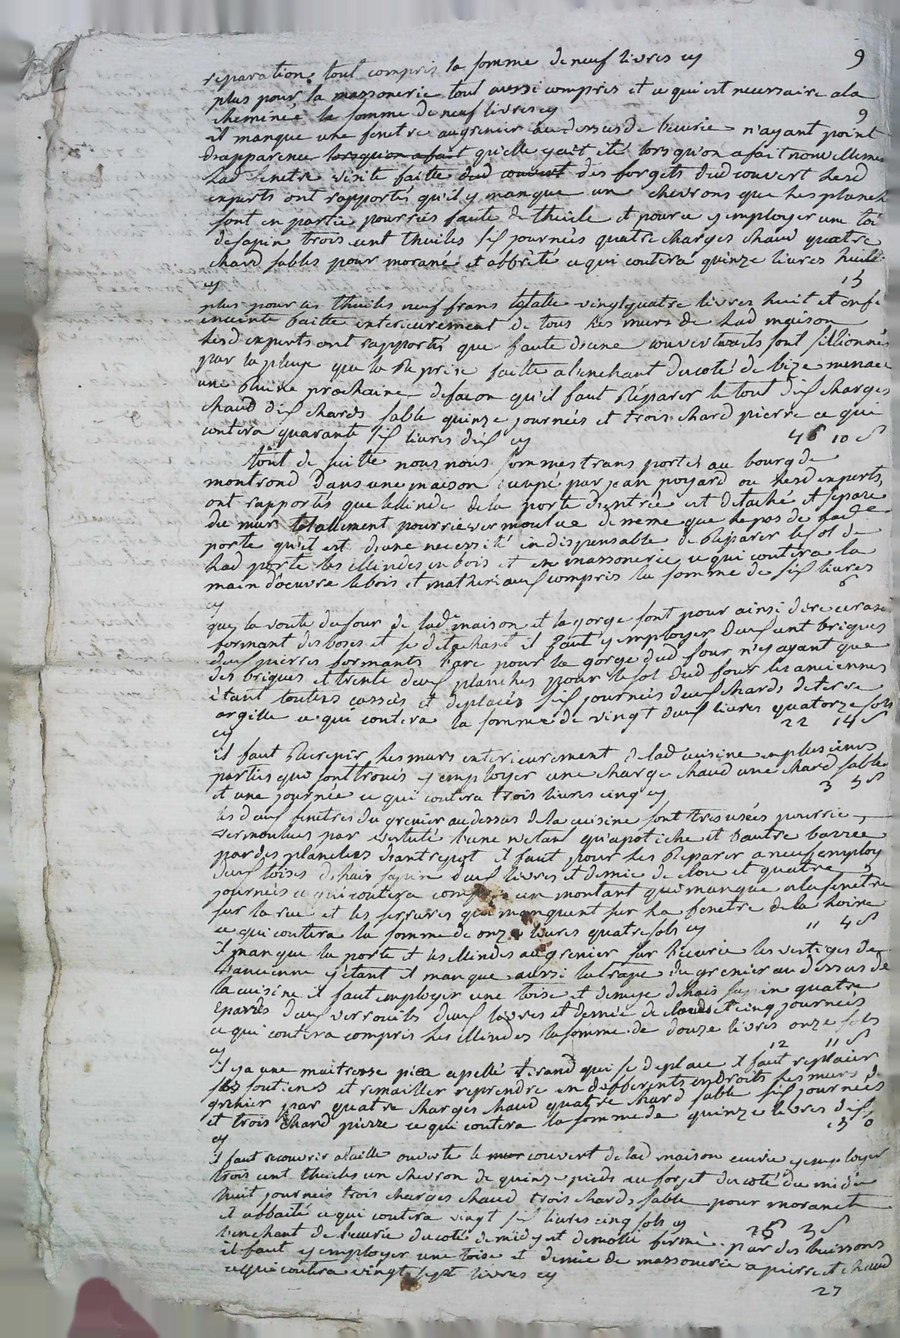 9
réparation, tout compris la somme de neuf livres cy
plus pour la massonerie tout aussi compris et ce qui est necessaire a la
cheminée la somme de neuf livres cy 9
il manque une fenetre au grenier au dessus de l'ecurie n'ayant point
d'apparence lorsqu'on a fait qu'elle y ait été lorsqu'on a fait nouvellement
lad fenetre visite faitte dud couvert des forgets dud couvert lesd
experts ont rapportés qu'il y manque un chevrons que les planches
sont en partie pourries faute de thuile et pour ce y employer une toi
de sapin trois cent thuiles six journées quatre charges chaud quatre
chard sables pour morané et abbrété ce qui coutera quinze livres huit
cy 15
plus pour les thuiles neuf frans totalle vingt quatre livres huit et enfi
enceinte faitte interieurement de tous les murs de lad maison
lesd experts ont rapportés que faute d'une couver travails sont sillionnés
par la pluye que la reprise faitte a l'enchant du coté de bize menace
une ruine prochaine defacon qu'il faut réparer le tout dix charges
chaud dix chards sable quinze journées et trois chard pierre ce qui
contera quarante six livres dix cy 46 10 s
tout de suitte nous nous sommes transportés au bourg de
montrond dans une maison occupé par jean poyard ou lesd experts
ont rapportés que le linde de la porte d'entrée est detaché et separé
du mur totallement pourrie vermoulue de meme que le pas de lade
porte qu'il est d'une necessité indispensable de réparer le sol de
lad porte les illindes en bois et en massonerie ce qui contera la
main d'oeuvre le bois et matheriaux compris la somme de six livres
cy 6
que la voute du four de lade maison et la gorge sont pour ainsi dire ecrasé
formant des boses et se detachant il faut y employer deux cent briques
deux pierres formants l'arc pour la gorge dud four n'y ayant que
des briques et trente deux planches pour le sol dud four les anciennes
étant touttes cassés et deplacés six journées deux chards de terre
argille ce qui contera la somme de vingt deux livres quatorze sols
cy 22 14 s
il faut Recrepir les murs interieurement de lad cuisine en plusieurs
parties qui sont troués y employer une charge chaud une chard sable
et une journée ce qui coutera trois livres cinq cy 3 5 s
les deux fenetres du grenier au dessus de la cuisine sont tres usées pourrie
vermoulues par vestuté l'une n'etant qu'apotiché et l'autre barrée
par des planches d'entrepot il faut pour les réparer a neuf employ
deux toises d'ehais sapin deux livres et demie de clou et quatre
journées ce qui coutera compris un montant qui manque a la fenetre
sur la rue et les serrures qui manquent sur la fenetre de la
ce qui contera la somme de onze livres quatre sols cy 11 4 s
il manque la porte et les illindes au grenier sur l'ecurie les vestiges de
l'ancienne y étant il manque aussi la trape du grenier au dessus de
la cuisine il faut employer une toise et demye d'ehais sapin quatre
éparres deux verrouils deux livres et demie de clouds et cinq journées
ce qui contera compris les illindes la somme de douze livres onze sols
cy 12 11 s
il y a une maitresse piece apellé tirand qui se deplace il faut replacer
ses soutiens et remailler reprendre en differents endroits les murs du
grenier par quatre charges chaud quatre chard sable six journées
et trois chard pierre ce qui contera la somme de quinze livres dix
cy 15 0
il faut recouvrir a taille ouverte le mur couvert de lad maison ecurie y employer
trois cent thuiles un chevron de quinze pieds au forjet du coté du midi
huit journées trois charges chaud trois chards sable pour moranet
et abbaité ce qui contera vingt six livres cinq sols cy 26 5 s
l'enchant de l'ecurie du coté de midy est demolie fermé par des buissons
il faut y employer une toise et demie de massonerie a pierre et chaud
ce qui contera vingt sept livres cy 27